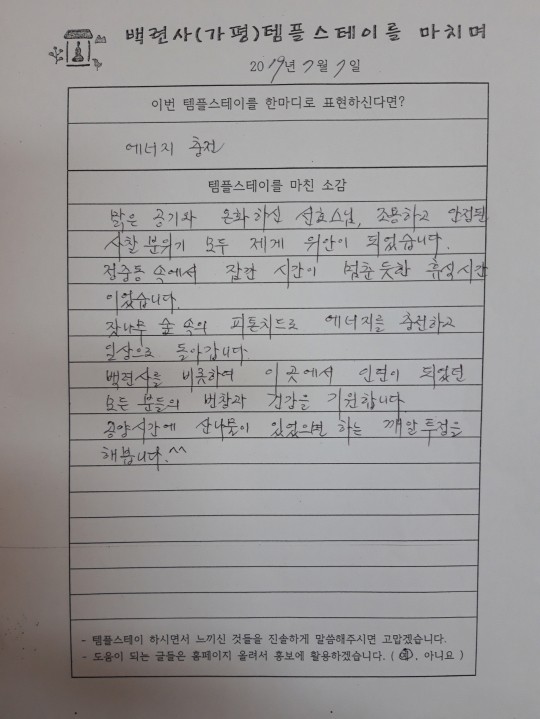 백련사(가평)템플스테이를 마치며
2019년 7월 7일
이번 템플스테이를 한마디로 표현하신다면?
에너지 충전
템플스테이를 마친 소감
밝은 공기와 온화하신 선효스님, 조용하고 안정된
사찰 분위기 모두 제게 위안이 되었습니다.
정중동 속에서 잠깐 시간이 멈춘듯한 휴식시간
이었습니다.
잣나무 숲 속의 피톤치드로 에너지를 충전하고
일상으로 돌아갑니다.
백련사를 비롯하여 이 곳에서 인연이 되었던
모든 분들의 번창과 건강을 기원합니다.
공양시간에 산나물이 있었으면 하는 깨알투정을
해봅니다.^^
- 템플스테이 하시면서 느끼신 것들을 진솔하게 말씀해주시면 고맙겠습니다.
- 도움이 되는 글들은 홈페이지 올려서 홍보에 활용하겠습니다. ( 예, 아니요 )